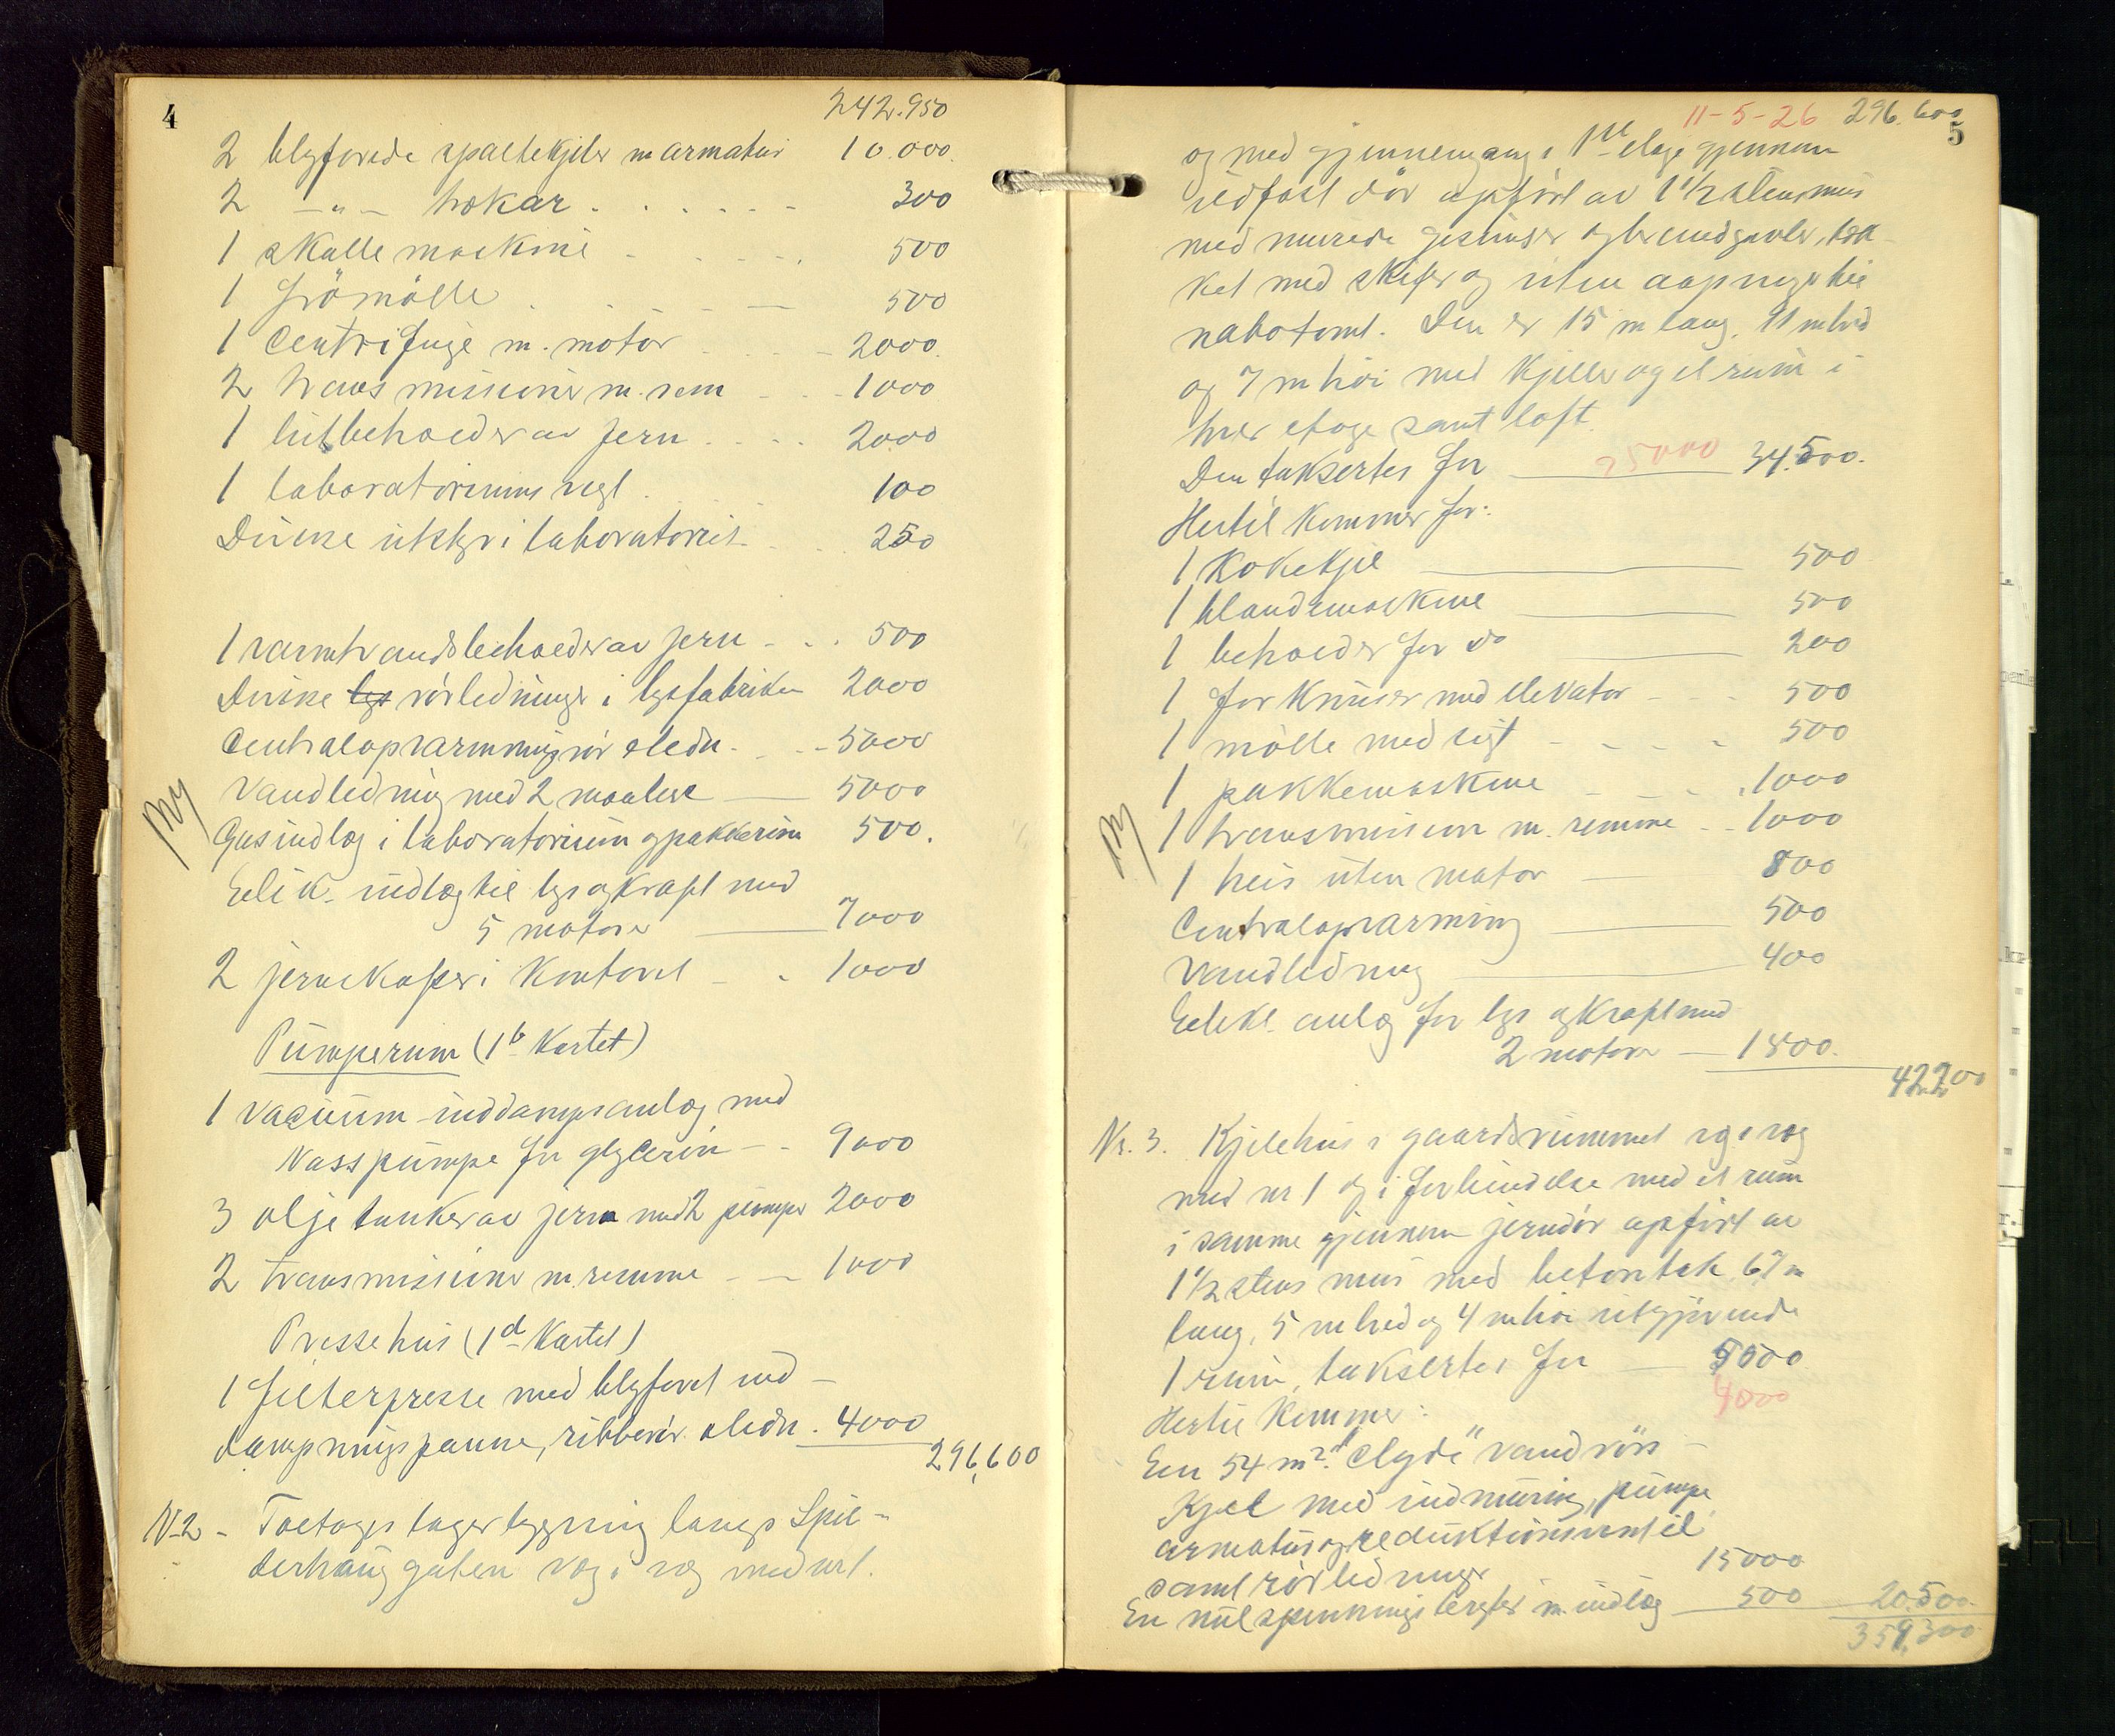 4
242.950
2 blyforede spaltekjeler m armatur 10.000.
2 —"— trokar . . . . . . 300
1 skallemaskine - - - - . 500
1 frömölle . - - — 500
1 Centrifuge m. motor - - - - 2000.
2 transmissioner m. rem - - - 1000
1 lutbeholder av jern . . . . 2000
1 laboratoriums vegt . . . 100
Diverse utstyr i laboratoriet - - . 250
1 varmtvandsbeholder av jern - . . 500
Diverse lys rörledninger i lysfabriken 2000
Centralopvarmningsrör oledn. - - - 5000
Ny
Vandledning med 2 maalere — 5000
Gasindlæg i laboratorium og pakkerum 500.
Eelik. indlæg til lys og kraft med
5 motorer — 7000
2 jernskaper i kontoret - - 1000
Pumperum (1b Kartet)
1 vacuum-inddampsanlæg med
Nasspumpe for glycerin - - 9000
3 oljetanker av jern med 2 pumper 2000
2 transmissioner m. remme - — 1000
Pressehus (1d Kartet)
1 filterpresse med blyforet ind-
dampningspanne, ribberör oledn. 4000
296,600
N. 2 - Toetages lagerbygning langs Spil-
derhauggaten væg i væg med nr 1.
11-5-26 296.600
5
og med gjennemgang i 1ste etage gjennem
ildfast dör opfört av 1 1/2 stens mur
med murede gesimser og brandgavler, tæk-
ket med skifer og uten aapninger til
nabotomt. Den er 15 m lang, 11 m bred
og 7 m höi med kjeller og et rum i
hver etage samt loft.
Den taksertes for 25000 34.500.
Hertil kommer for:
1 kokekjel — 500
1 blandemaskine — 500
1 beholder for do — 200
1 forknuser med elevator - - - 500
1 mölle med sigt - - - - 500
1 pakkemaskine - - - . 1000
Ny
1 transmission m. remme - - 1000
1 heis uten motor — 800
Centralopvarming — 500
Vandledning — 400
Eelekt. anlæg for lys og kraft med
2 motorer — 1800.
42200
Nr. 3. Kjelehus i gaardsrummet væg i væg
med nr 1 og i forbindelse med et rum
i samme gjennem jerndör opfört av
1 1/2 stens mur med betontak 6,7 m
lang, 5 m bred og 4 m höi utgjörende
1 rum, taksertes for — 5000
4000
Hertil kommer:
En 54 m2 "Clyde" vandrörs-
kjel med indmuring, pumpe,
armatur og reduktionsventil
samt rörledninger 15000
En nulspenningsbryter m. indlæg — 500 20.500.
359.300